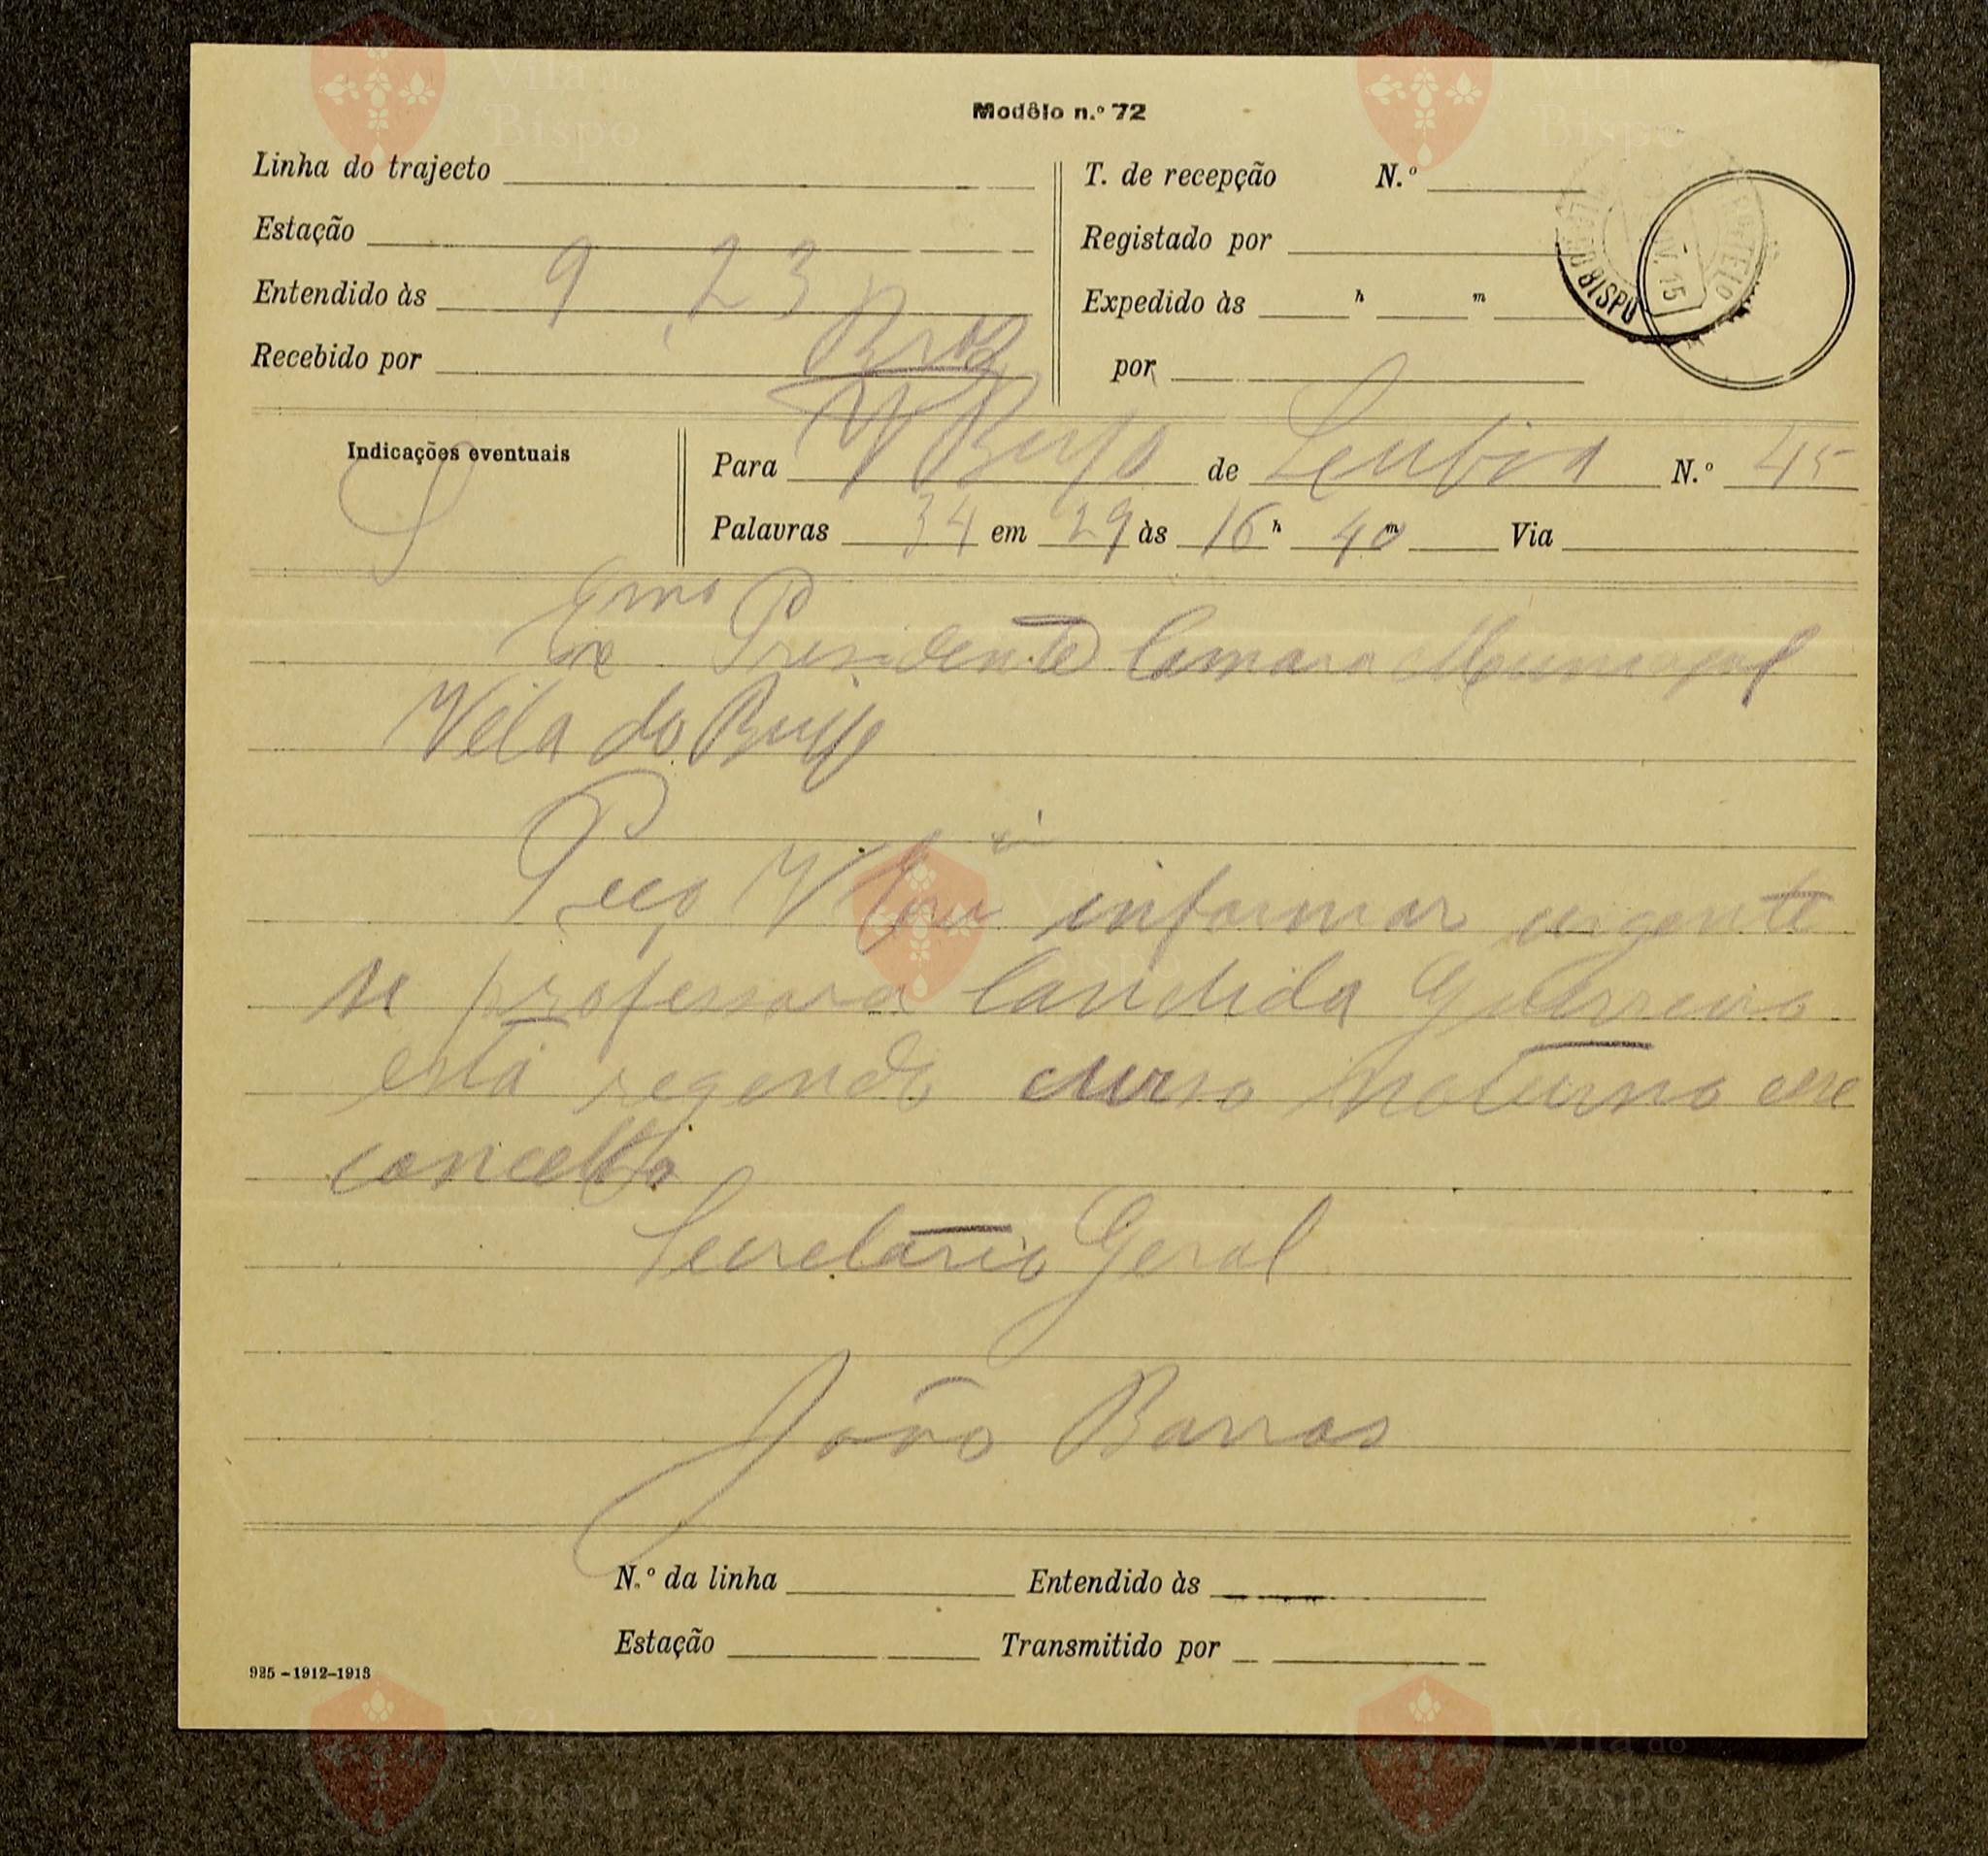 Modêlo n.º 72
Linha do trajecto
Estação
Entendido às 9 23
Recebido por Broz
T. de recepção N.º
Registado por
Expedido às h m
por
BISPO
NOV. 15
Indicações eventuais
S
Para V Bispo de Lisboa N.º 45
Palavras 34 em 29 às 16 h 40 m Via
Exmo Presidente Camara Municipal
Vila do Bispo
Peço V Exia informar urgente
se professora Candida Guerreiro
está regendo curso noturno esse
concelho
Secretario Geral
João Barros
N.º da linha Entendido às
Estação Transmitido por
925 – 1912–1913
Vila do Bispo
Vila do Bispo
Vila do Bispo
Vila do Bispo
Vila do Bispo